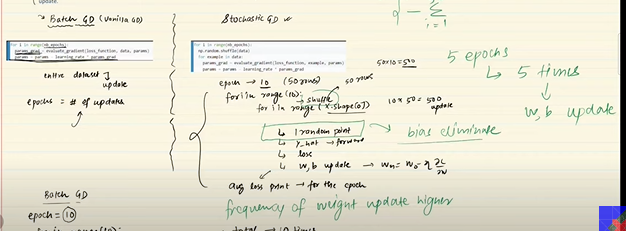 update.
→ Batch GD (Vanilla GD)
for i in range(nb_epochs):
params_grad = evaluate_gradient(loss_function, data, params)
params = params - learning_rate * params_grad
entire dataset
update
epochs = # of updates
Batch GD
epoch = 10
Stochastic GD
for i in range(nb_epochs):
np.random.shuffle(data)
for example in data:
params_grad = evaluate_gradient(loss_function, example, params)
params = params - learning_rate * params_grad
epoch → 10 (50 rows)
50 rows
for i in range(10):
→ shuffle
for i in range (X.shape[0])
↳ 1 random point
↳ y_hat → forward
↳ loss
↳ w, b update → Wn = Wo - η ∂L/∂W
avg loss print → for the epoch
frequency of weight update higher
→ 10 times
50×10 = 500
10 × 50 = 500
update
bias eliminate
Σ
i = 1
5 epochs
↳ 5 times
↓
w, b update